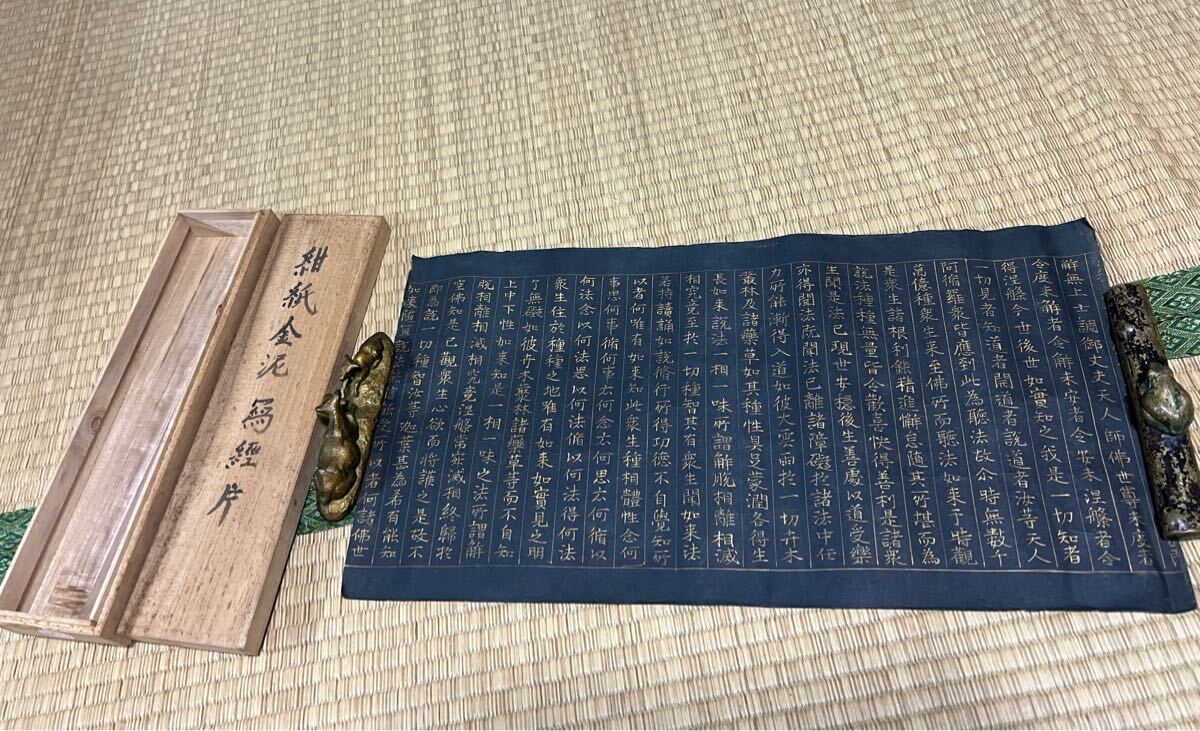 解無上士調御丈夫天人師佛世尊未度者
令度未解者令解未安者令安未涅槃者令
得涅槃今世後世如實知之我是一切知者
一切見者知道者開道者說道者汝等天人
阿脩羅衆皆應到此為聽法故尒時無數千
萬億種衆生來至佛所而聽法如來于時觀
是衆生諸根利鈍精進懈怠随其所堪而為
說法種種無量皆令歡喜快得善利是諸衆
生聞是法已現世安穩後生善處以道受樂
亦得聞法既聞法已離諸障礙於諸法中任
力所能漸得入道如彼大雲雨於一切卉木
叢林及諸藥草如其種性具足蒙潤各得生
長如來說法一相一味所謂解脫相離相滅
相究竟至於一切種智其有衆生聞如來法
若持讀誦如說脩行所得功德不自覺知所
以者何唯有如來知此衆生種相體性念何
事思何事脩何事云何念云何思云何脩以
何法念以何法思以何法脩以何法得何法
衆生住於種種之地唯有如來如實見之明
了無礙如彼卉木叢林諸藥草等而不自知
上中下性如來知是一相一味之法所謂解
脫相離相滅相究竟涅槃常寂滅相終歸於
空佛知是已觀衆生心欲而將護之是故不
即為說一切種智汝等迦葉甚為希有能知
如來随宜說法能信能受所以者何諸佛世
紺紙金泥 寫經片